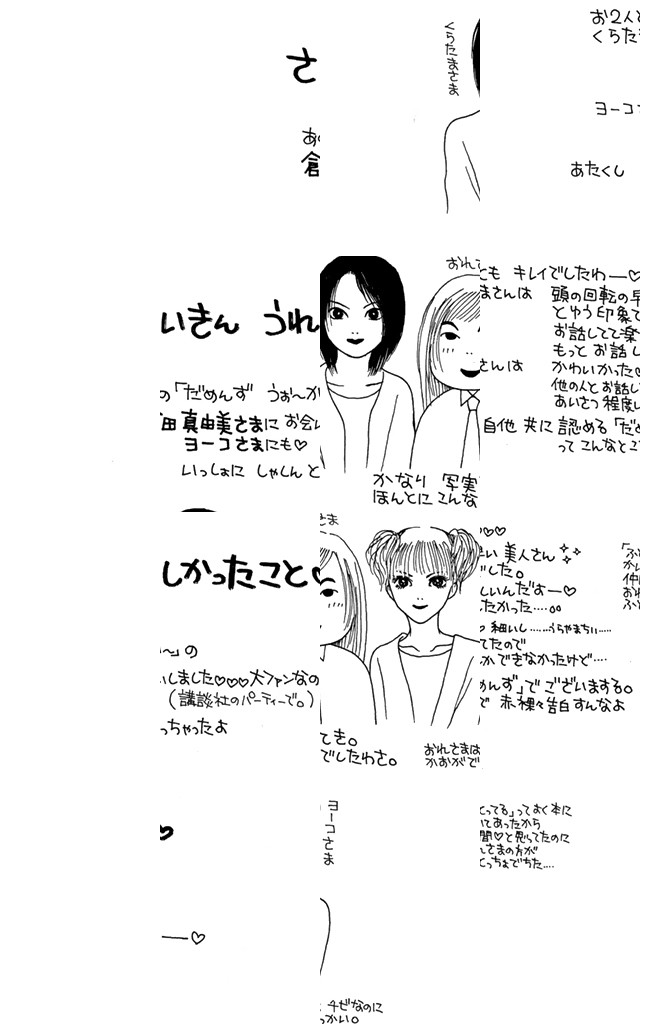 さ
倉
くらたまさま
お2人と
くらた
ヨーコ
あたくし
いきん うれ
の「だめんず うぉ〜か
田真由美さまに お会い
ヨーコさまにも♡
いっしょに しゃしん と
おれさ
かなり 写実
ほんとに こんな
とも キレイでしたわー♡
まさんは 頭の回転の早
とゆう印象で
お話してて楽
もっと お話し
さんは かわいかった♡
他の人とお話し
あいさつ程度
自他 共に 認める「だめ
って こんなとこ
しかったこと♡
〜」の
いしました♡♡♡大ファンなの
(講談社のパーティーで。)
っちゃったよ
さま
てき。
でしたわさ。
おれさまは
かおがで
♡♡
い 美人さん
でした。
しいんだおー♡
たかった‥‥。。
細いし‥‥‥うらやまちい‥‥
てたので
かできなかったけど‥‥
めんず」でございまする。
で 赤裸々告白すんなよ
「ふと
かい
仲間
おれ
ふと
ー♡
ヨーコさま
チゼなのに
っかい。
とってる」っておく本に
いてあったから
間♡と思ってたのに
れさまの方が
とっちょでちた‥‥